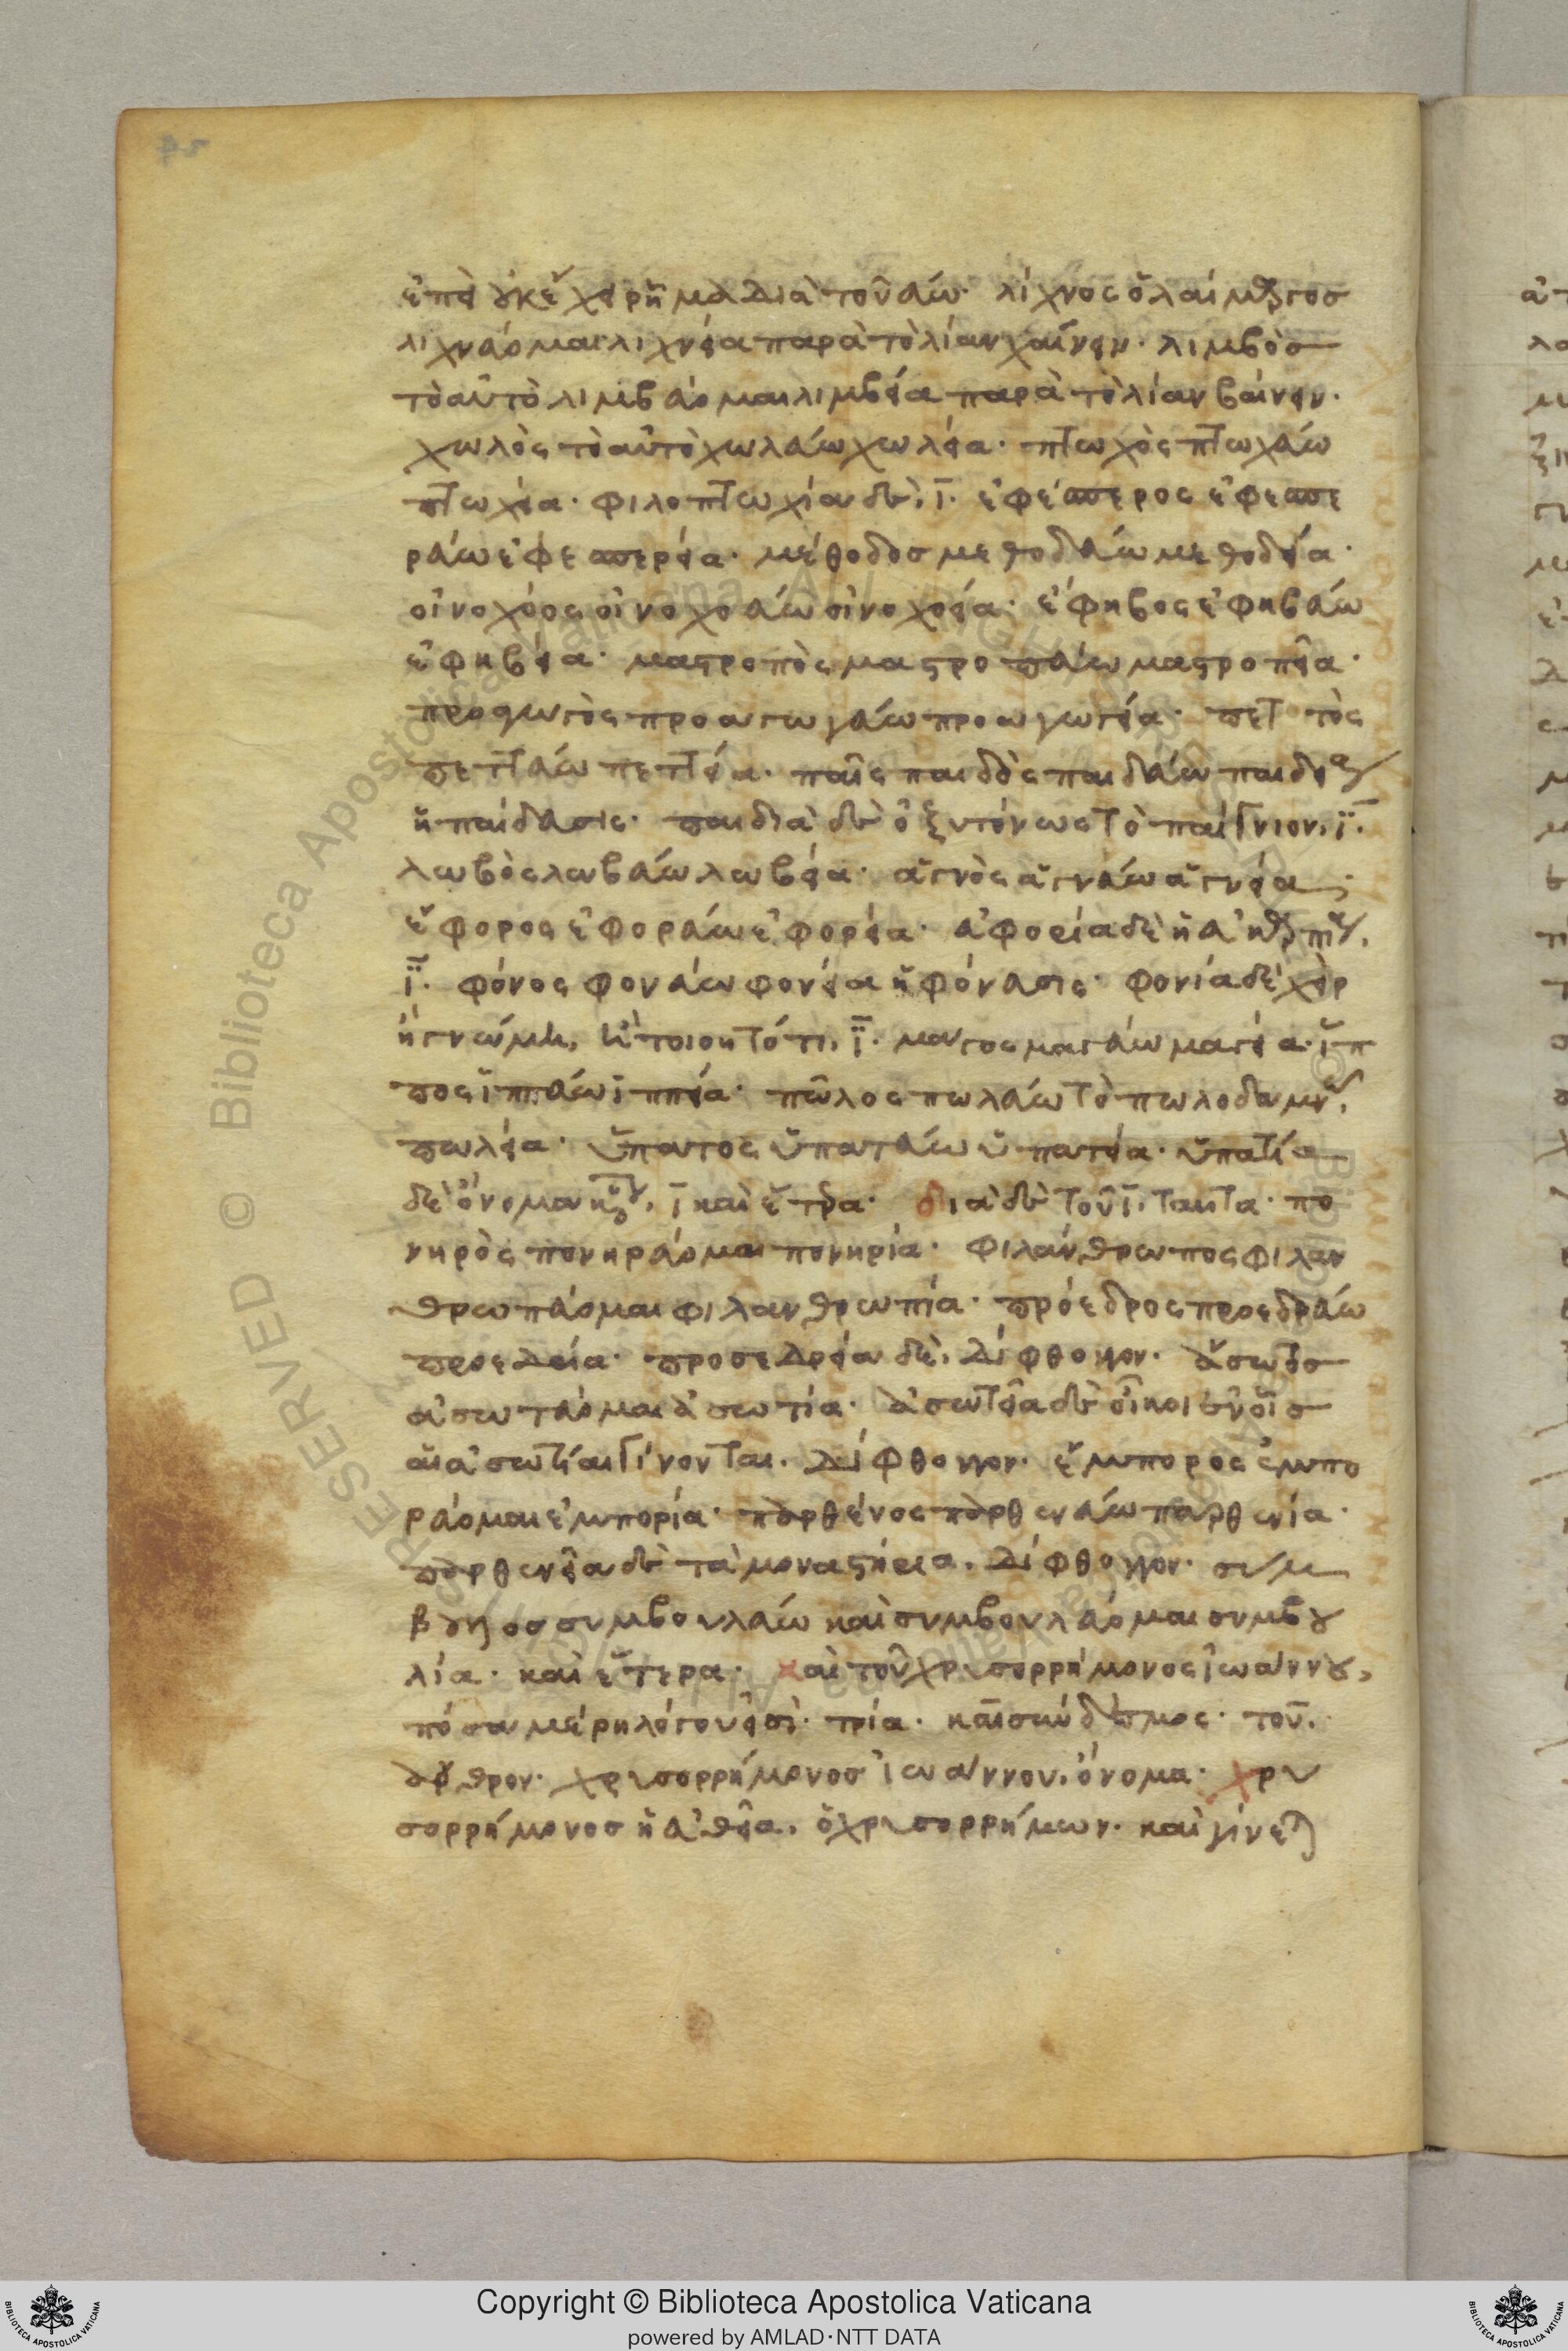 ἐπεὶ οὐκ ἔχει ῥῆμα διὰ τοῦ αύω· λίχνος ὁ λαίμαργος
λιχναύομαι λιχνεία παρὰ τὸ λίαν χαίνειν· λιμβὸς
τὸ αὐτὸ λιμβαύομαι λιμβεία παρὰ τὸ λίαν βαίνειν·
χωλὸς τὸ αὐτὸ χωλαύω χωλεία· πτωχὸς πτωχαύω
πτωχεία· φιλοπτωχία δὲ, ι· ἐφέσπερος ἐφεσπε
ραύω ἐφεσπερεία· μέθοδος μεθοδαύω μεθοδεία·
οἰνοχόος οἰνοχοαύω οἰνοχοεία· ἔφηβος ἐφηβαύω
ἐφηβεία· μαστροπὸς μαστροπαύω μαστροπεία·
προαγωγὸς προαγωγαύω προαγωγεία· πεττὸς
πετταύω πεττεία· παῖς παιδὸς παιδαύω παιδεία
ἡ παίδασις· παιδιὰ δὲ ὀξυτόνως τὸ παίγνιον, ι·
λωβὸς λωβαύω λωβεία· ἁγνὸς ἁγναύω ἁγνεία·
ἔφορος ἐφοραύω ἐφορεία· ἀφορία δὲ ἡ
ϊ· φόνος φοναύω φονεία ἡ φόνασις· φονία δὲ χεὶρ
ἢ γνώμη, ἢ τοιοῦτό τι, ϊ· μάγος μαγαύω μαγεία· ἵπ
πος ἱππαύω ἱππεία· πῶλος πωλαύω τὸ πωλοδαμν
πωλεία· ὕπατος ὑπαταύω ὑπατεία· ὑπατία
δὲ ὄνομα κύριον, ι καὶ ἕτερα· διὰ δὲ τοῦ ι, ταῦτα· πο
νηρὸς πονηραύομαι πονηρία· φιλάνθρωπος φιλαν
θρωπαύομαι φιλανθρωπία· πρόεδρος προεδραύω
προεδρία· προσεδρεία δὲ, δίφθογγον· ἄσωτος
ἀσωταύομαι ἀσωτία· ἀσωτεῖα δὲ οἶκοι ἐν οἷς
αἱ ἀσωτίαι γίνονται. δίφθογγον· ἔμπορος ἐμπο
ραύομαι ἐμπορία· παρθένος παρθεναύω παρθενία·
παρθενεῖα δὲ τὰ μοναστήρια. δίφθογγον· σύμ
βουλος συμβουλαύω καὶ συμβουλαύομαι συμβου
λία· καὶ ἕτερα· καὶ τοῦ χρυσορρήμονος ἰωάννου,
πόσα μέρη λόγου εἰσί· τρία· καὶ σύνδεσμος· τοῦ,
ἄρθρον· χρυσορρήμονος ἰωάννου, ὄνομα· χρυ
σορρήμονος ἡ εὐθεῖα, ὁ χρυσορρήμων· καὶ γίνεται